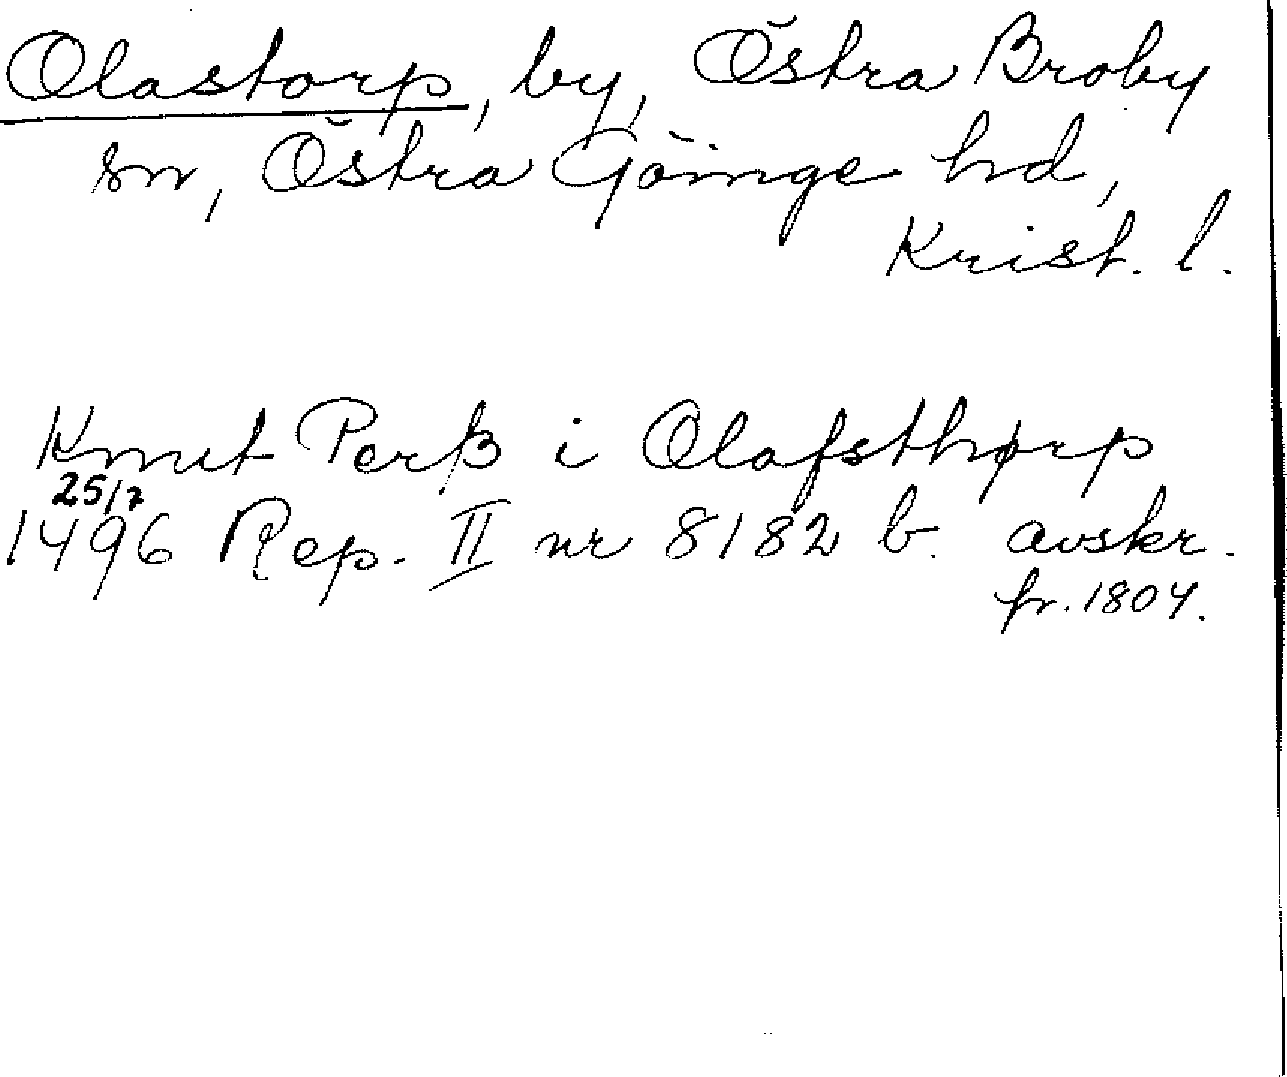 Olastorp, by, Östra Broby
sn, Östra Göinge hd,
Krist. l.
Knut Perß i Olafsthørp
25/7
1496 Rep. II nr 8182 b. avskr.
fr. 1804.